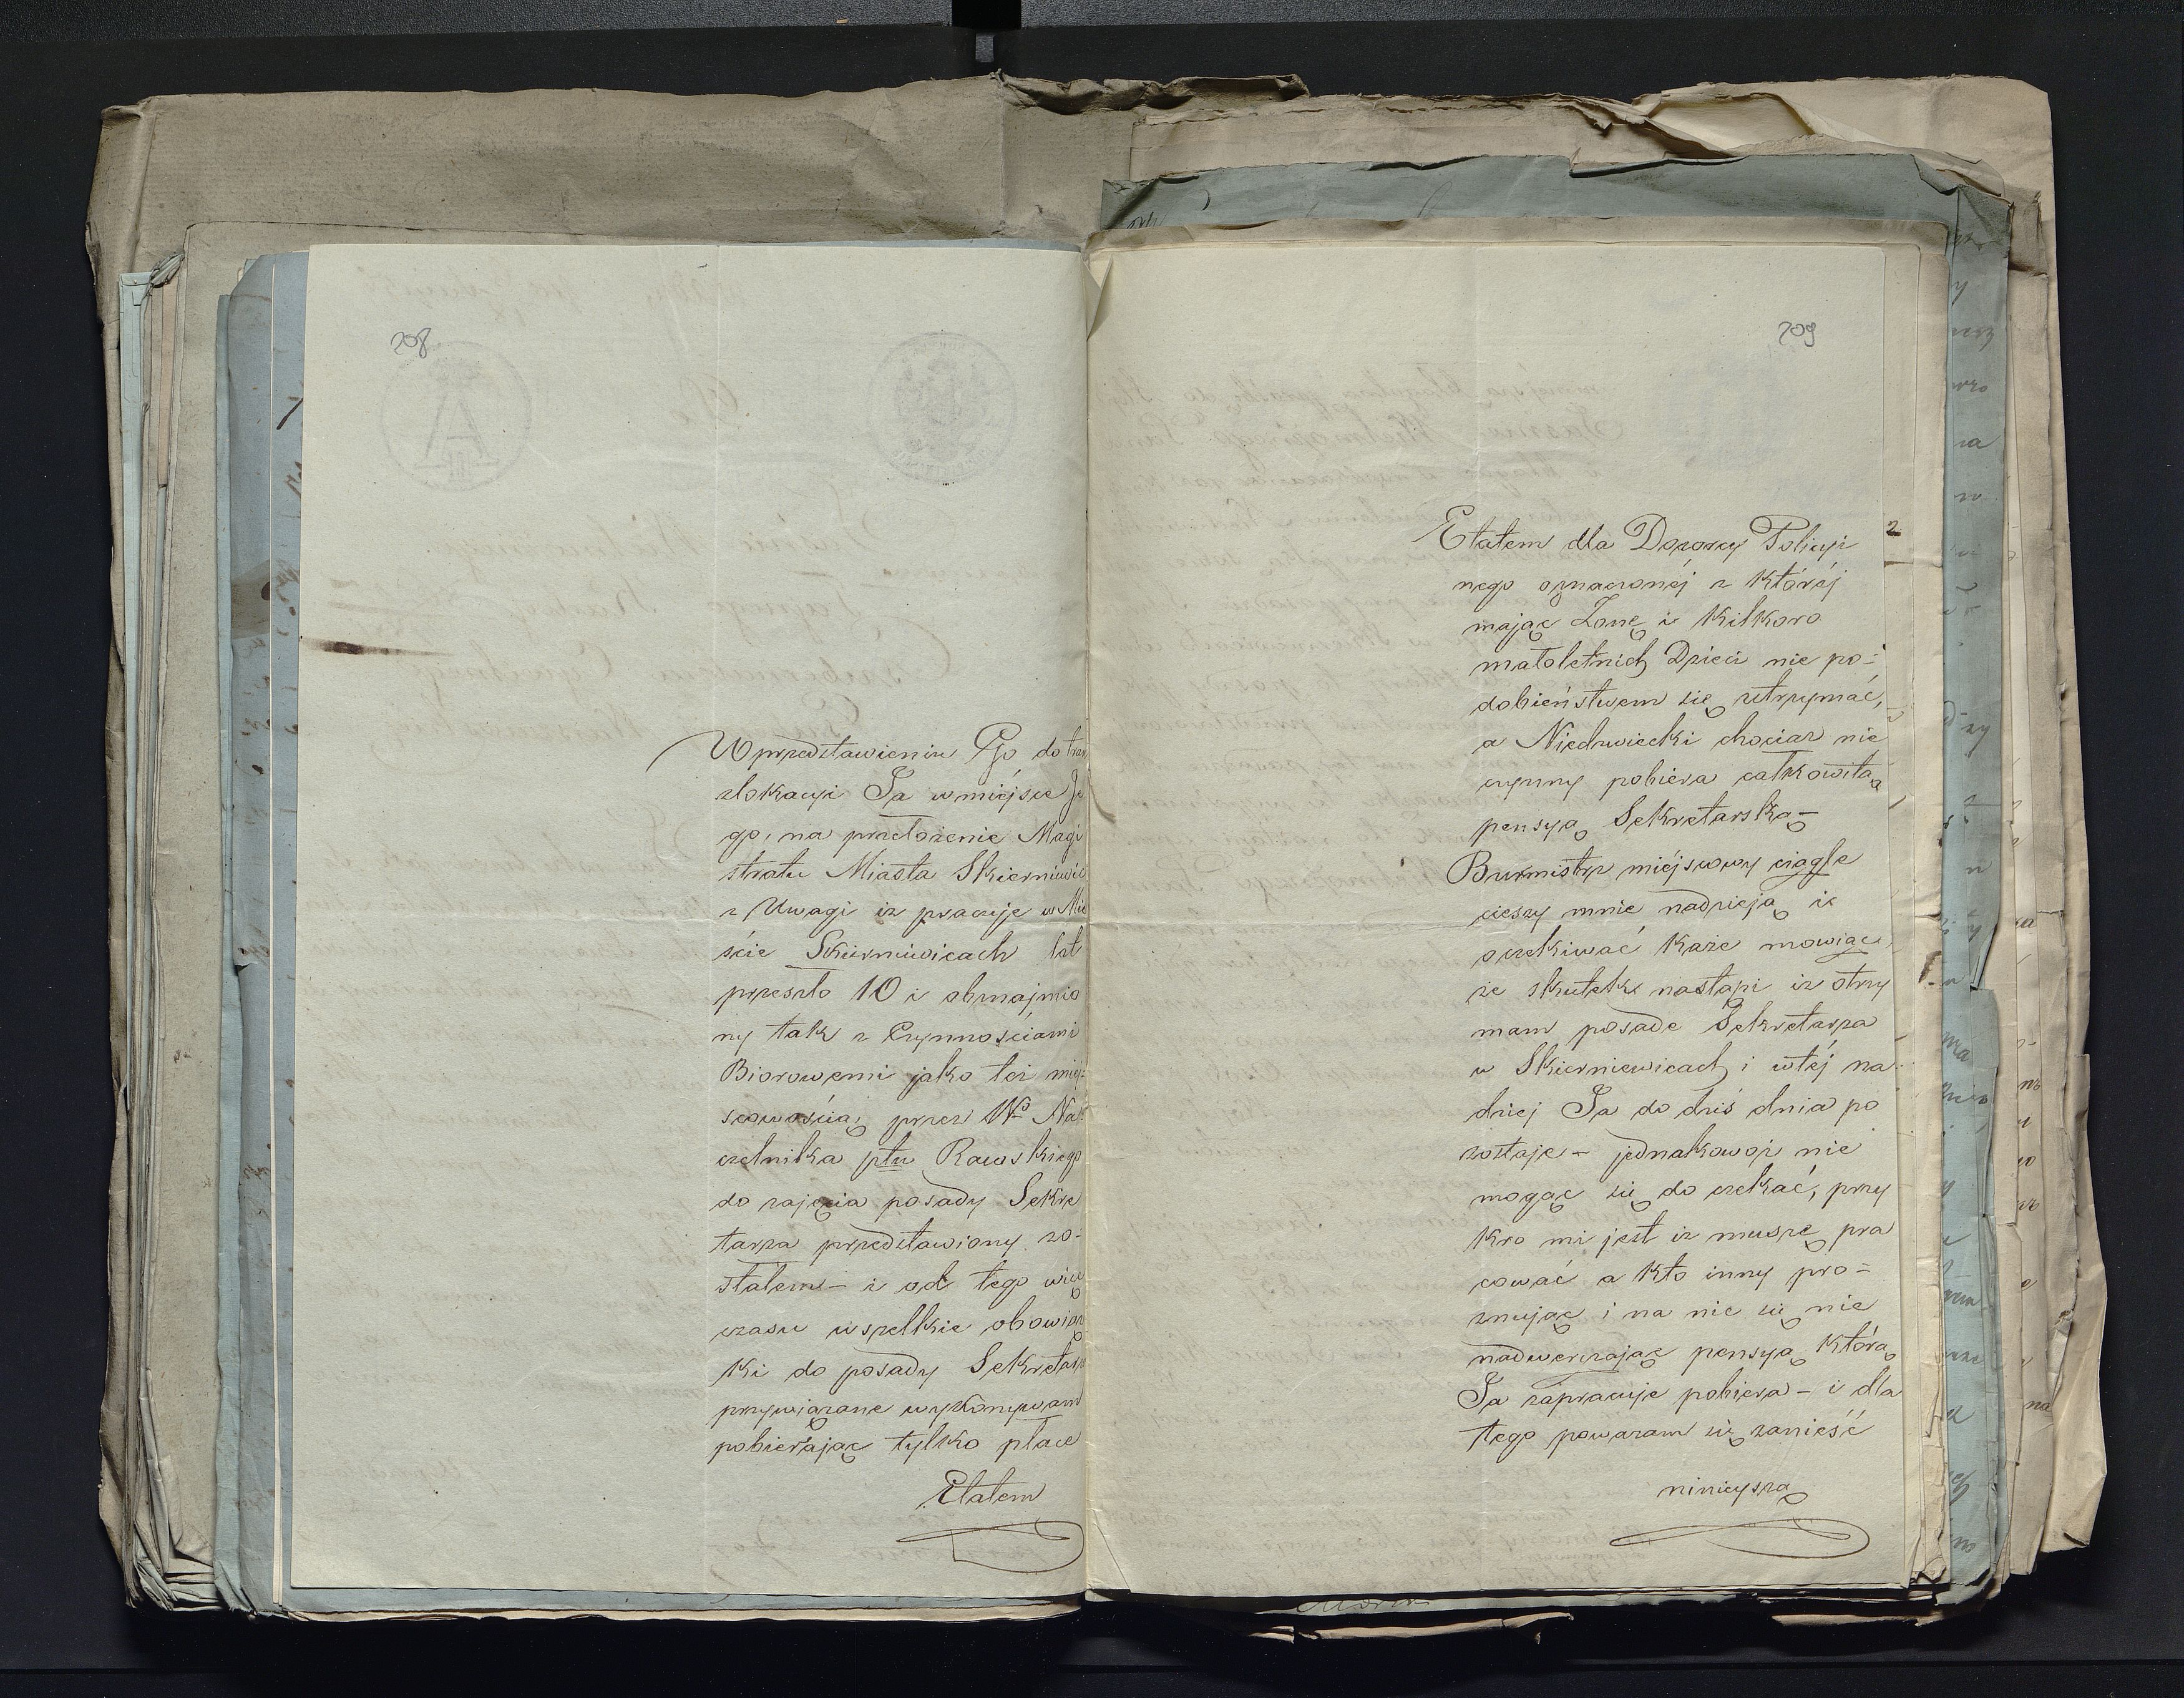 208
W przedstawieniu Go do tran
slokacyi Ja w miejsce Je
go, na przełożenie Magi
stratu Miasta Skierniewic
z Uwagi iz pracuje w Mie
ście Skierniewicach lat
przeszło 10 i obznajmio
ny tak z Czynnościami
Biorowemi jako też miéj=
scowością przez Wº Na=
czelnika ptu Rawskiego
do zajęcia posady Sekre
tarza przedstawiony zo=
stałem – i od tego więc
czasu wszelkie obowiąz
ki do posady Sekretarza
przywiązane wykonywam
pobierając tylko płace
Etatem
209
2
Etatem dla Dozorcy Policyi
nego oznaczonéj z któréj
mając Zonę i Kilkoro
małoletnich Dzieci nie po=
dobieństwem się utrzymać,
a Niedzwiecki chociaz nie
czynny pobiera całkowitą
pensyą Sekretarską –
Burmistrz miéjscowy ciągle
cieszy mnie nadzieją iż
oczekiwać każe mowiąc
że skutek nastąpi iz otrzy
mam posade Sekretarza
w Skierniewicach i w téj na
dziej Ja do dziś dnia po
zostaje – jednakowoż nie
mogąc się do czekać, przy
kro mi jest iz muszę pra
cować a kto inny pro=
znując i na nic się nie
nadwerezając pensyą którą
Ja zapracuje pobiera – i dla
tego powazam się zanieść
niniejszą